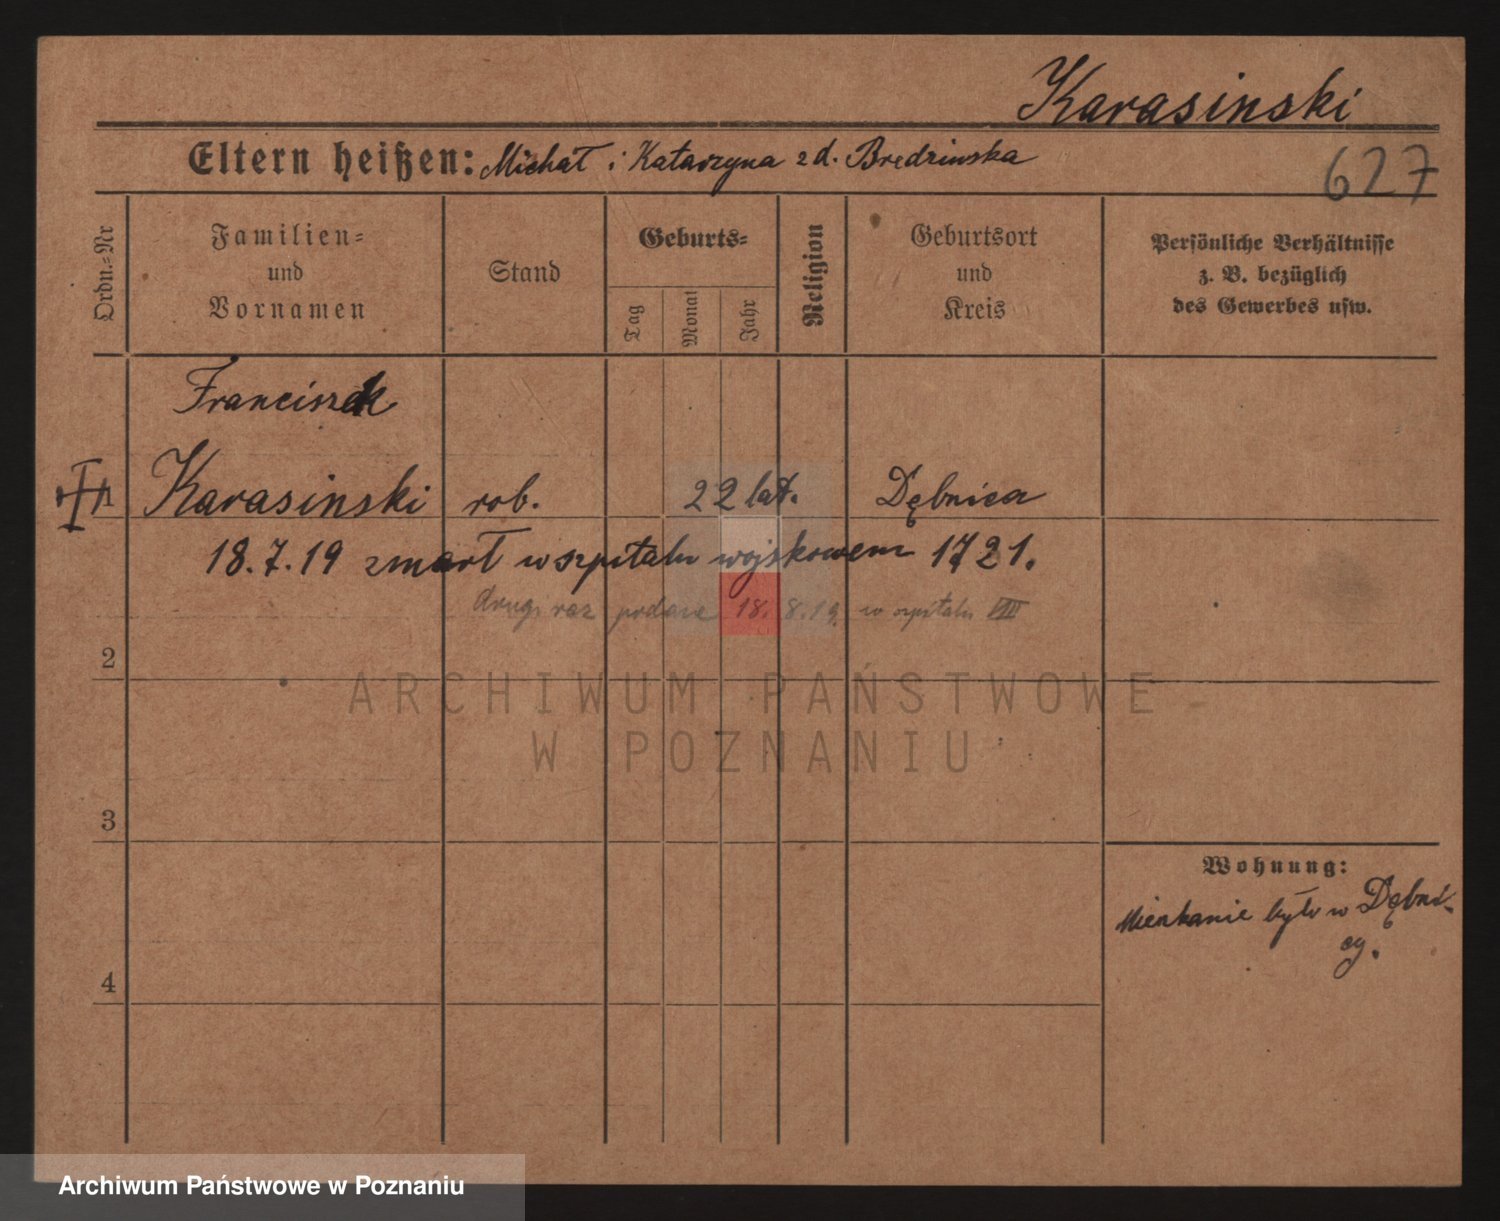 Karasinski
Eltern heißen: Michał i Katarzyna z d. Bredzinska
627
Ordn.=Nr
Familien=
und
Vornamen
Stand
Geburts=
Tag
Monat
Jahr
Religion
Geburtsort
und
Kreis
Persönliche Verhältnisse
z. B. bezüglich
des Gewerbes usw.
Franciszek
1 Karasinski rob. 22 lat. Dębnica
18.7.19 zmarł w szpitalu wojskowem 1721.
drugi raz podane 18.8.19. w szpitalu VIII
2
ARCHIWUM PAŃSTWOWE
W POZNANIU
3
Wohnung:
Mieszkanie było w Dębni-
cy.
4
Archiwum Państwowe w Poznaniu